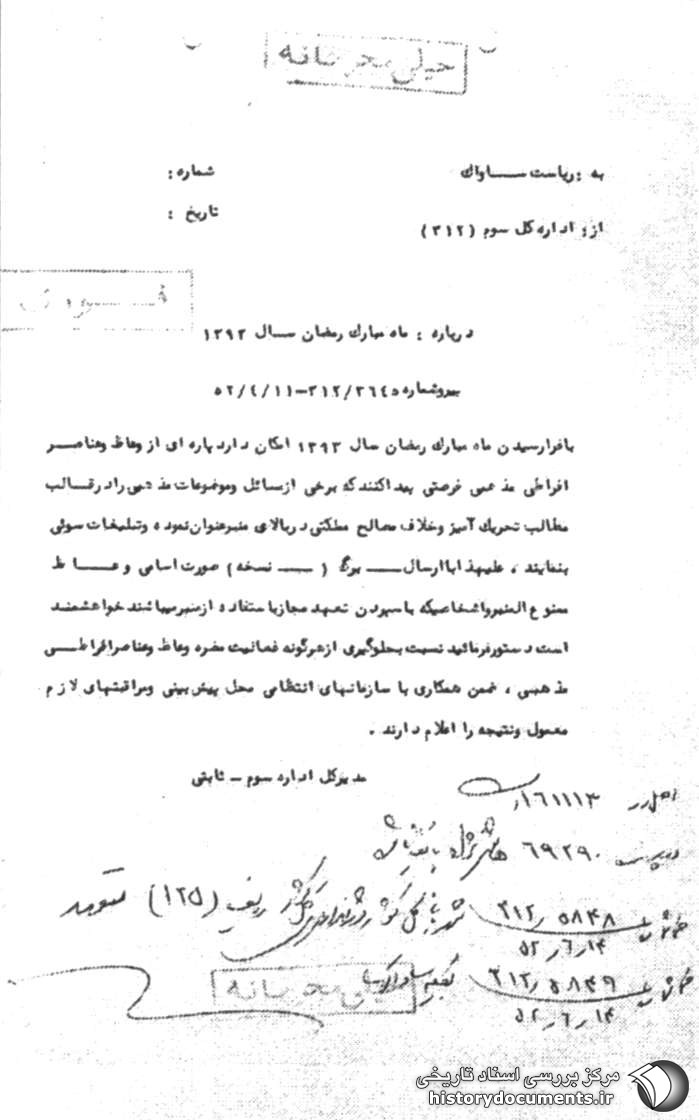 خیلی محرمانه
به : ریاست ســـاواک
شماره :
از : اداره کل سوم (۳۱۲)
تاریخ :
درباره : ماه مبارک رمضان ســال ۱۳۹۳
پیرو شماره ۳۱۲/۳۶۴۵-۵۲/۴/۱۱
بافرارسیدن ماه مبارک رمضان سال ۱۳۹۳ امکان دارد پاره ای از وعاظ وعناصــر
افراطی مذهبی فرصتی پیدا کنند که برخی ازمسائل وموضوعات مذهبی رادرقــالب
مطالب تحریک آمیز وخلاف مصالح مملکتی دربالای منبرعنوان نموده وتبلیغات سوئی
بنمایند ، علیهذا باارسال ــــ برگ ( ــــ نسخه ) صورت اسامی وعــــاظ
ممنوع المنبرواشخاصیکه باسپردن تعهد مجازباستفاده ازمنبرمیباشند خواهشمنـد
است دستورفرمائید نسبت بجلوگیری ازهرگونه فعالیت مضره وعاظ وعناصرافراطــی
مذهبی ، ضمن همکاری با سازمانهای انتظامی محل پیش بینی ومراقبتهای لازم
معمول ونتیجه را اعلام دارند .
مدیرکل اداره سوم - ثابتی
اصل در ۱۶۱۱۱۳
۶۹۲۹۰
۳۱۲٫۵۸۴۸
(۱۲۵)
۵۲٫۶٫۱۴
۳۱۲٫۵۸۴۹
۵۲٫۶٫۱۴
خیلی محرمانه
مرکز بررسی اسناد تاریخی
historydocuments.ir